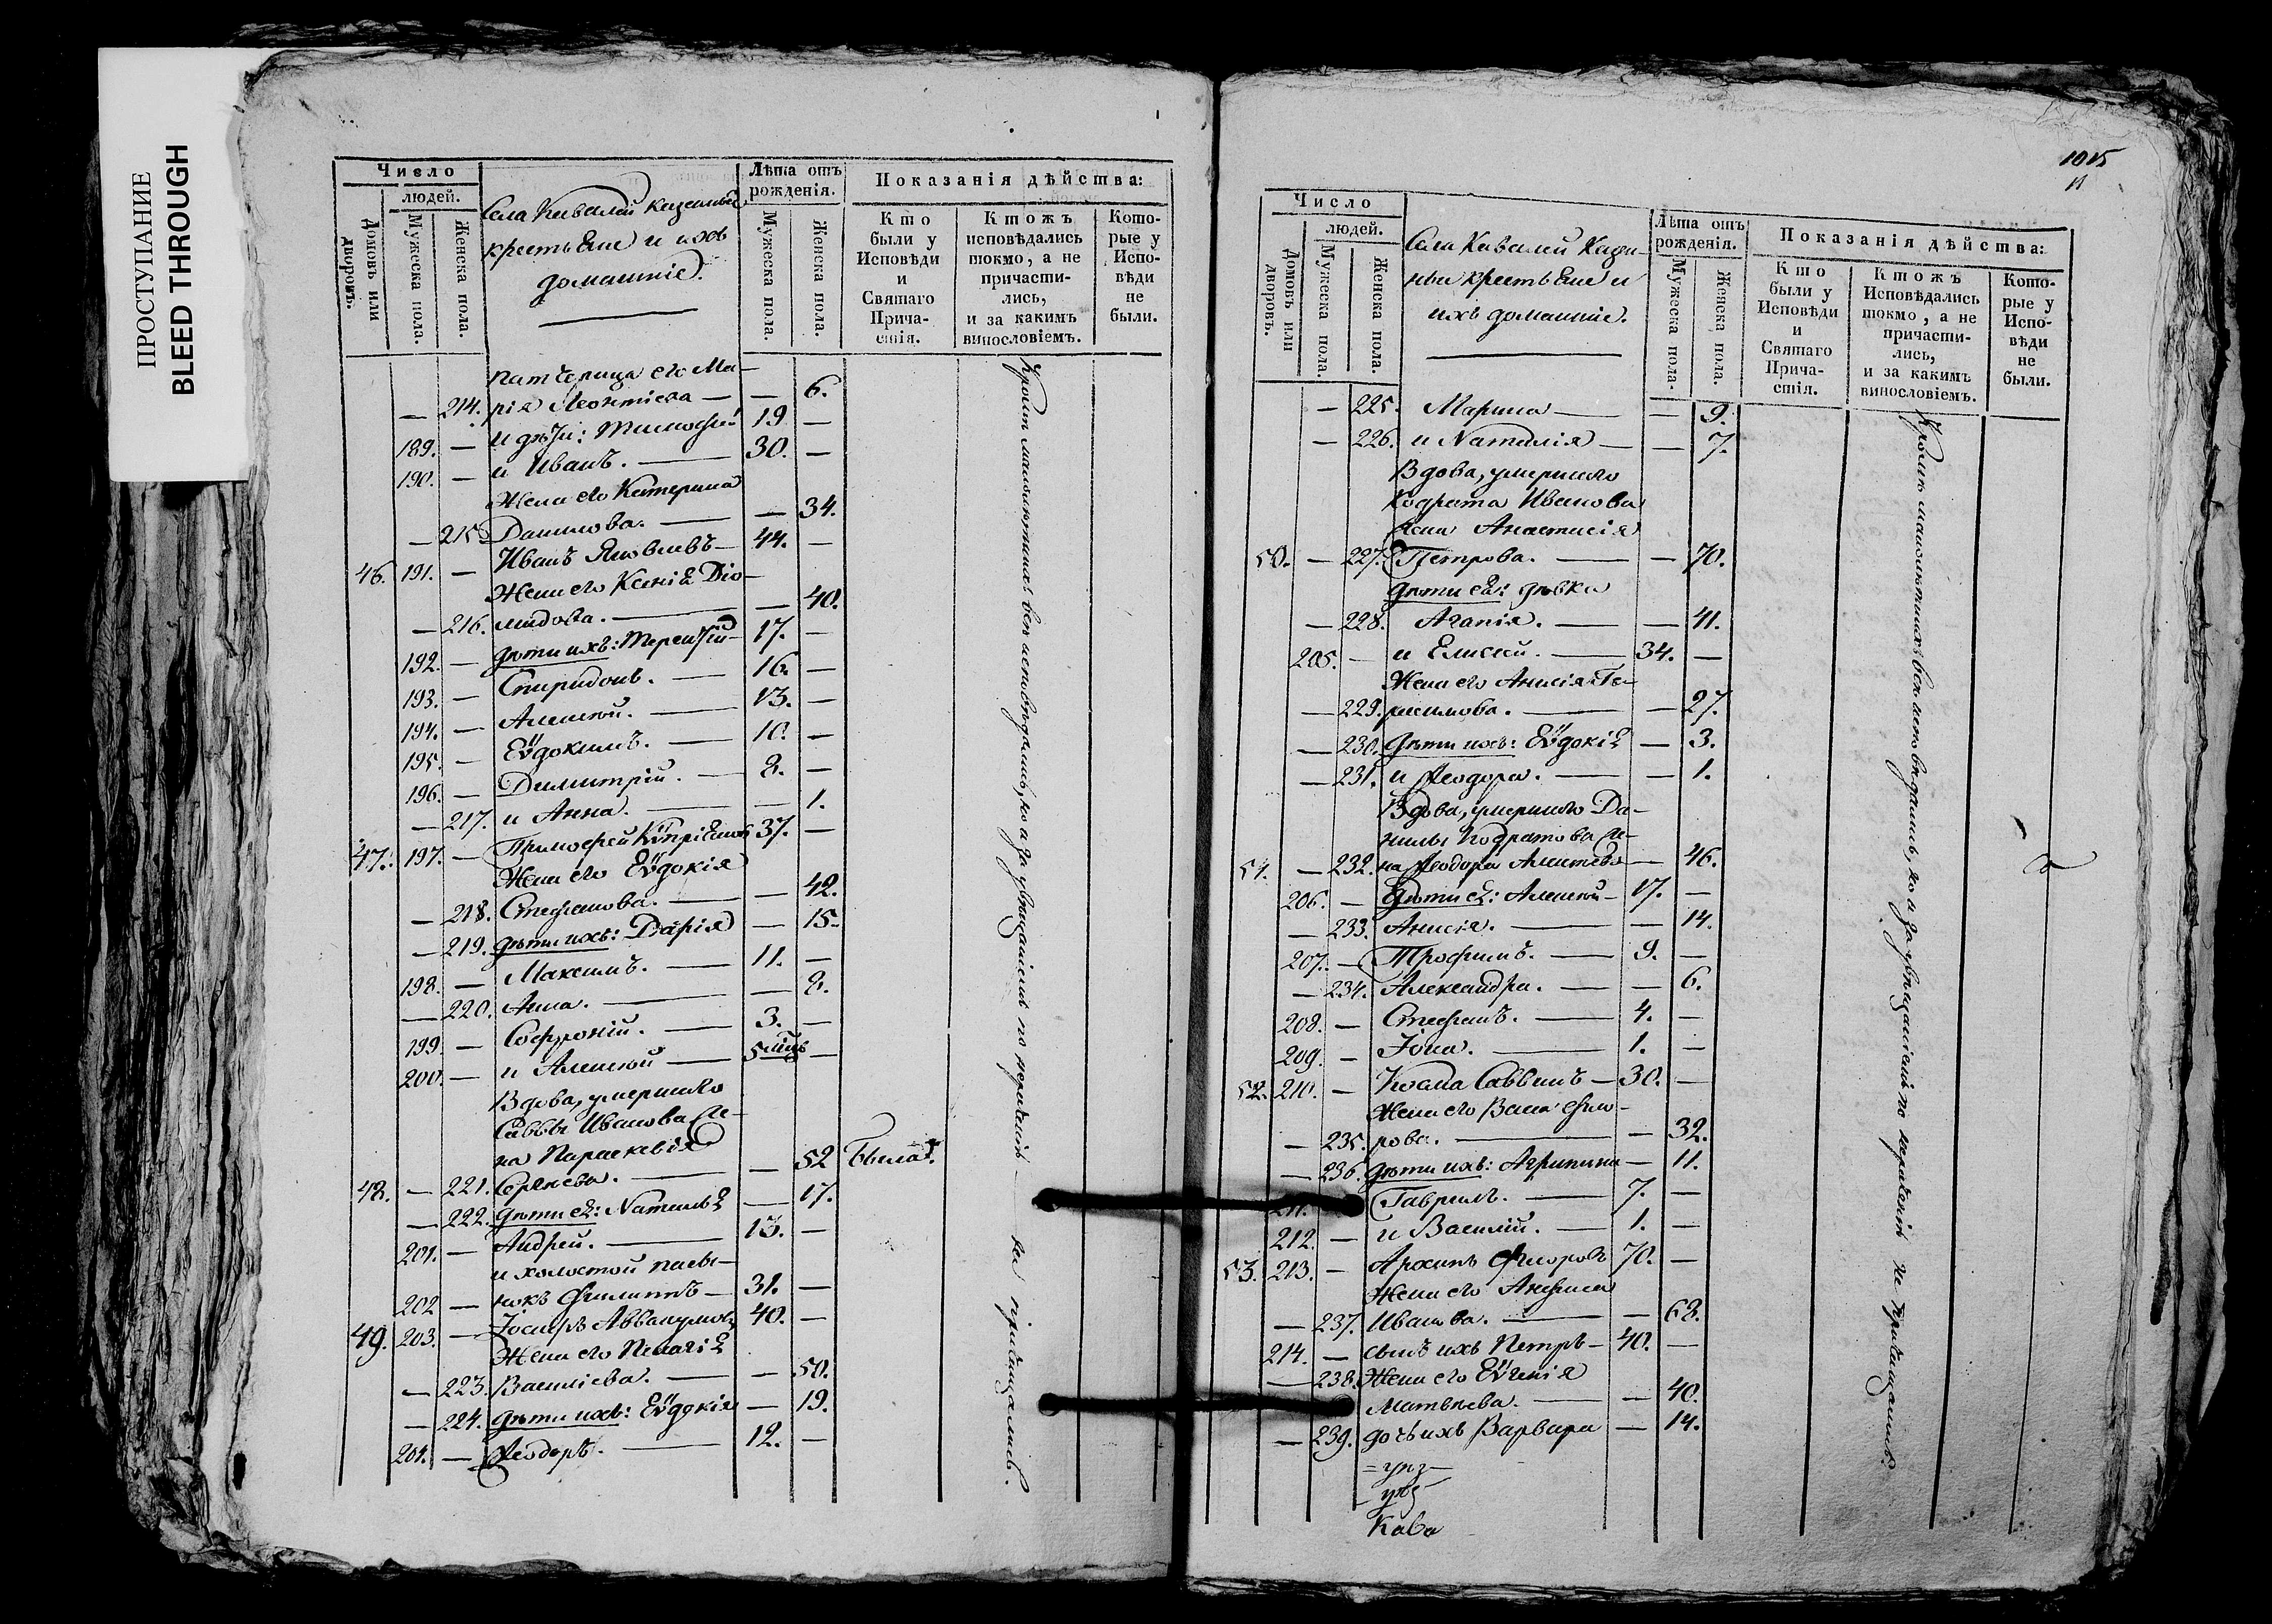 ПРОСТУПАНИЕ
BLEED THROUGH
Число
людей.
Домовъ или дворовъ.
Мужеска пола.
Женска пола.
Села Кивалей казенные
крестьяне и ихъ
домашніе.
Лѣта отъ рожденія.
Мужеска пола.
Женска пола.
Показанія дѣйства:
Кто были у Исповѣди и Святаго Причастія.
Ктожъ исповѣдались токмо, а не причастились, и за какимъ винословіемъ.
Которые у Исповѣди не были.
патчерица его Ма-
— 214. рія Леонтіева — — 6.
189. — и дѣти: Тимофей 19 —
190. — и Иванъ. — 30. —
Жена его Катерина
— 215 Данилова. — — 34.
46. 191. — Иванъ Яковлевъ — 44. —
Жена его Ксенія Діо-
— 216. мидова. — — 40.
192. — дѣти ихъ: Терентій — 17. —
193. — Спиридонъ. — 16. —
194. — Алексѣй. — 13. —
195. — Еѵдокимъ. — 10. —
196. — Димитрій. — 8. —
— 217. и Анна. — — 1.
47. 197. — Тимофей Кѵпріановъ 37. —
Жена его Еѵдокія
— 218. Стефанова. — — 42.
— 219. дѣти ихъ: Дарія — 15.
198. — Максимъ. — 11. —
— 220. Анна. — — 8.
199. — Софроній. — 3. —
200. — и Алексѣй — 5 мцъ —
Вдова, умершаго
Саввы Иванова же-
на Параскевія
48. — 221. Сергѣева. — — 52 Была.
— 222. дѣти ея: Наталья — 17.
201. — Андрей. — 13. —
и холостой пасы-
202 — нокъ Филиппъ — 31. —
49. 203. — Іосифъ Аввакумовъ 40. —
Жена его Пелагія
— 223. Василіева. — — 50.
— 224. дѣти ихъ: Еѵдокія — 19.
204. — Ѳеодоръ. — 12. —
Кромѣ малолѣтнихъ всѣ исповѣдались, но и за увѣщаніемъ по нерадѣнію — не причащались.
1015
11
Число
людей.
Домовъ или дворовъ.
Мужеска пола.
Женска пола.
Села Кивалей Казе-
нные крестьяне и
ихъ домашніе.
Лѣта отъ рожденія.
Мужеска пола.
Женска пола.
Показанія дѣйства:
Кто были у Исповѣди и Святаго Причастія.
Ктожъ Исповѣдались токмо, а не причастились, и за какимъ винословіемъ.
Которые у Исповѣди не были.
— 225. Марина — — 9.
— 226. и Наталія — — 7.
Вдова, умершаго
Кодрата Иванова
жена Анастасія
50. — 227. Петрова. — — 70.
дѣти ея: дѣвка
— 228. Агапія. — — 41.
205. — и Елисей. — 34. —
Жена его Анисія Ге-
— 229. расимова. — — 27.
— 230. дѣти ихъ: Еѵдокія — 3.
— 231. и Ѳеодора. — — 1.
Вдова, умершаго Да-
нилы Кодратова же-
51. — 232. на Ѳеодора — 46.
206. — дѣти ея: Алексѣй — 17. —
— 233. Анисія. — — 14.
207. — Трофимъ. — 9. —
— 234. Александра. — — 6.
208. — Стефанъ. — 4. —
209. — Іона. — 1. —
52. 210. — Козма Саввинъ — 30. —
Жена его Васса Фло-
— 235. рова. — — 32.
— 236. дѣти ихъ: Агрипина — 11.
211. Гаврилъ. — 7. —
212. — и Василій. — 1. —
53. 213. — Архипъ Флоровъ 70. —
Жена его Анфиса
— 237. Иванова. — — 68.
214. — сынъ ихъ Петръ — 40. —
— 238. Жена его Еѵгенія
Матвѣева. — — 40.
— 239. дочь ихъ Варвара — 14.
Кромѣ малолѣтнихъ всѣ исповѣдались, но и за увѣщаніемъ по нерадѣнію не причащались.